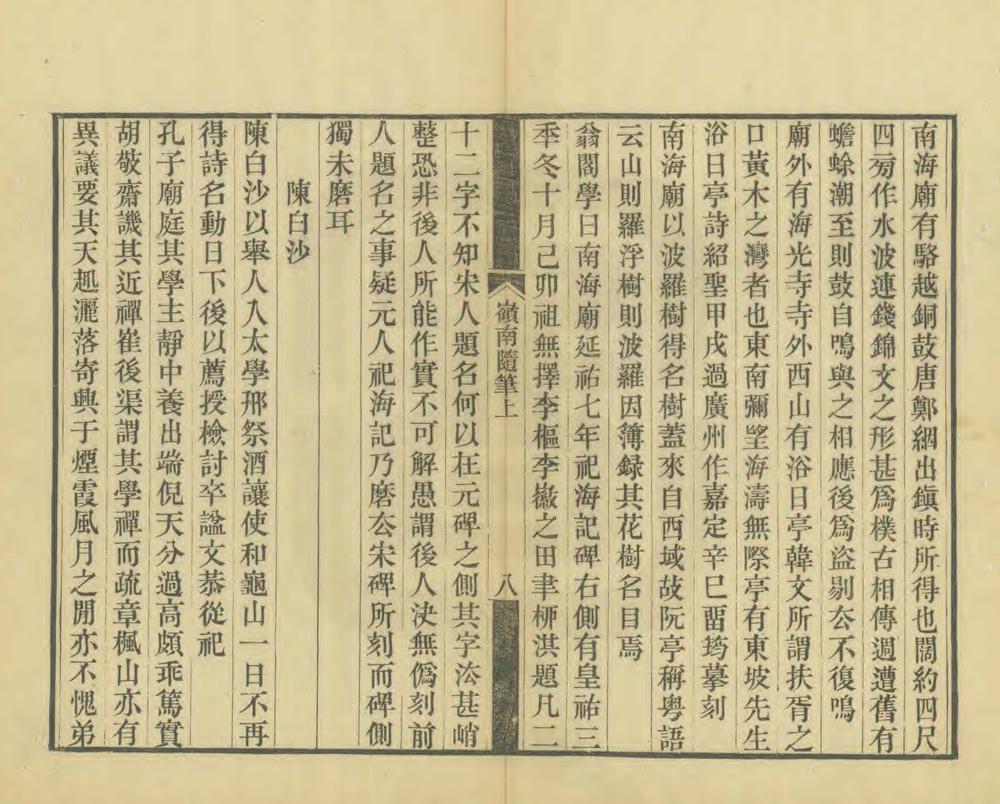 南海廟有駱越銅鼓唐鄭絪出鎮時所得也闊約四尺
四旁作水波連錢錦文之形甚爲樸古相傳週遭舊有
蟾蜍潮至則鼓自鳴與之相應後爲盜剔厺不復鳴
廟外有海光寺寺外西山有浴日亭韓文所謂扶胥之
口黃木之灣者也東南彌望海濤無際亭有東坡先生
浴日亭詩紹聖甲戌過廣州作嘉定辛巳畱筠摹刻
南海廟以波羅樹得名樹蓋來自西域故阮亭稱粵語
云山則羅浮樹則波羅因簿録其花樹名目焉
翁閣學曰南海廟延祐七年祀海記碑右側有皇祐三
秊冬十月己卯祖無擇李樞李徽之田聿桺淇題凡二
嶺南隨筆上
八
十二字不知宋人題名何以在元碑之側其字法甚峭
整恐非後人所能作實不可解愚謂後人決無僞刻前
人題名之事疑元人祀海記乃磨厺宋碑所刻而碑側
獨未磨耳
陳白沙
陳白沙以舉人入太學邢祭酒讓使和龜山一日不再
得詩名動日下後以薦授檢討卒諡文恭從祀
孔子廟庭其學主靜中養出端倪天分過高頗乖篤實
胡敬齋譏其近禪崔後渠謂其學禪而疏章楓山亦有
異議要其天趣灑落寄興于煙霞風月之閒亦不愧弟